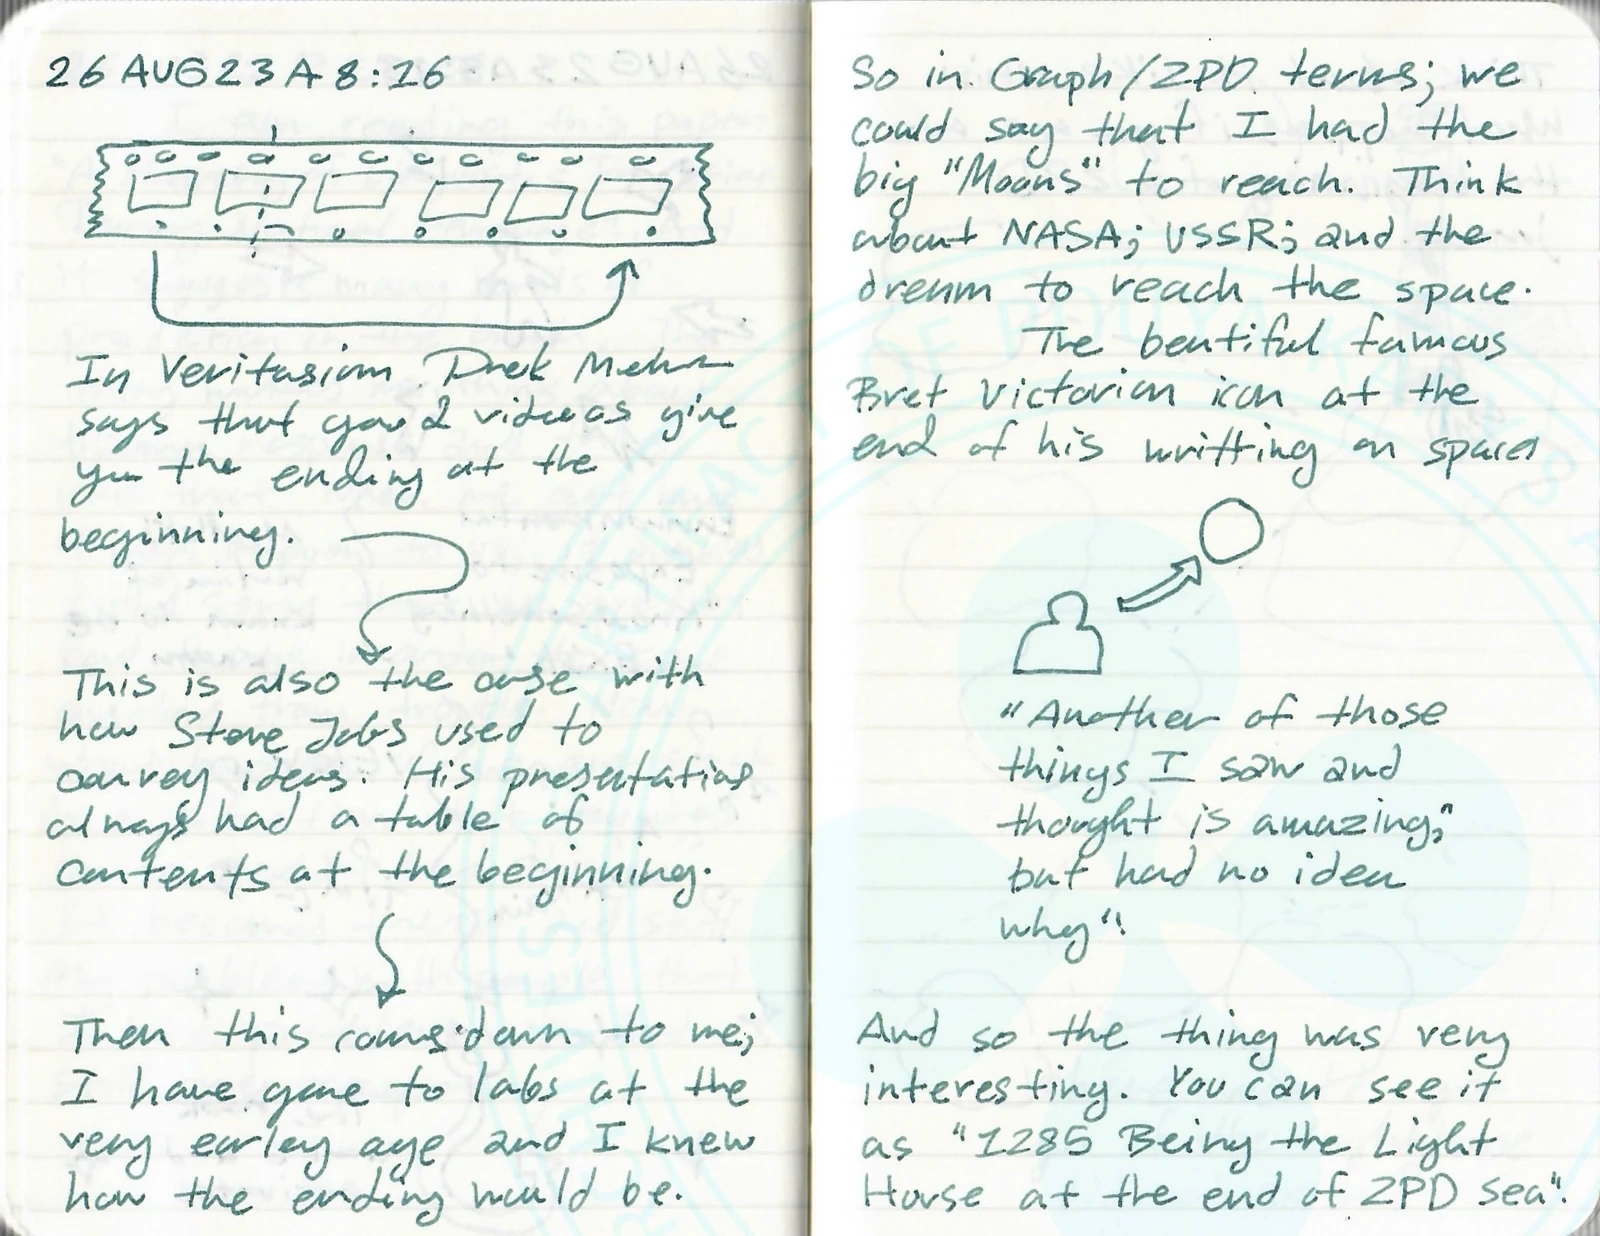 26 AUG 23 A 8:16
In Veritasium Derek
says that good videos give
you the ending at the
beginning.
This is also the case with
how Steve Jobs used to
convey ideas. His presentations
always had a table of
contents at the beginning.
Then this comes down to me;
I have gone to labs at the
very earley age and I knew
how the ending would be.
So in Graph/ZPD terms; we
could say that I had the
big "Moons" to reach. Think
about NASA; USSR; and the
dream to reach the space.
The beutiful famous
Bret Victorian icon at the
end of his writting on spaces
"Another of those
things I saw and
thought is amazing;"
but had no idea
why".
And so the thing was very
interesting. You can see it
as "1285 Being the Light
House at the end of ZPD sea".